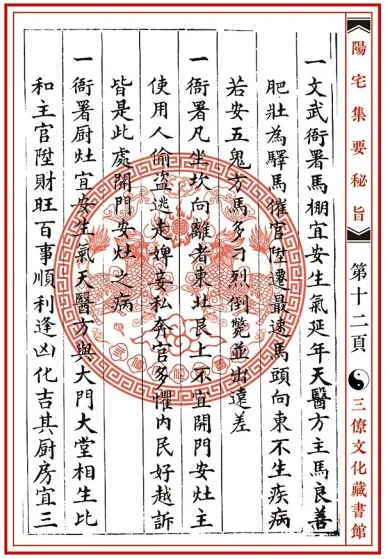 陽宅集要秘旨
第十二頁
三僚文化藏書館
一文武衙署馬棚宜安生氣延年天醫方主馬良善
肥壯為驛馬催官陞遷最速馬頭向東不生疾病
若安五鬼方馬多刁烈倒斃並出違差
一衙署凡坐坎向離者東北艮上不宜開門安灶主
使用人偷盜逃走婢妾私奔官多懼內民好越訴
皆是此處開門安灶之病
一衙署厨灶宜安生氣天醫方與大門大堂相生比
和主官陞財旺百事順利逢凶化吉其厨房宜三